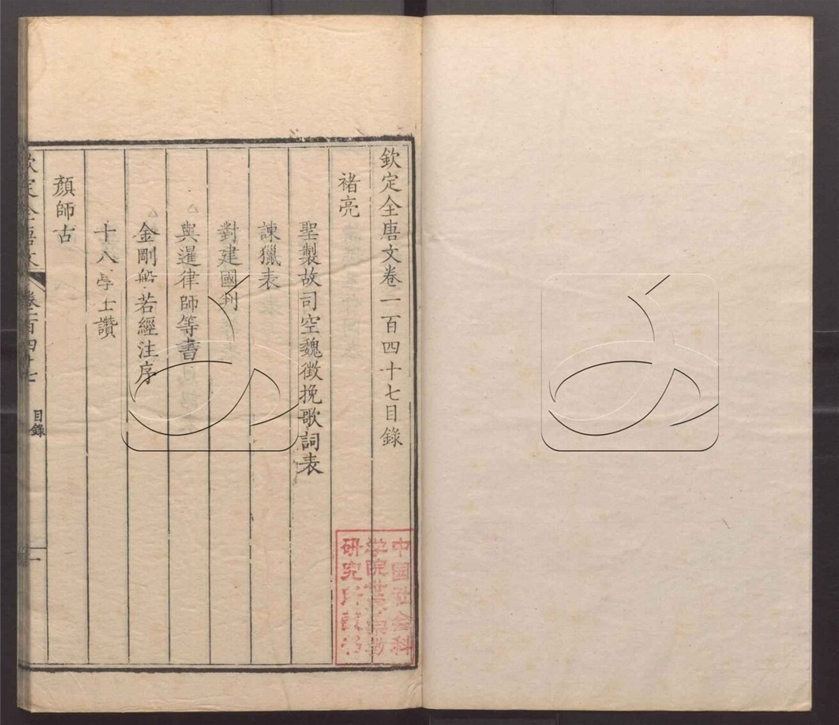 欽定全唐文卷一百四十七目錄
褚亮
聖製故司空魏徵挽歌詞表
諫獵表
對建國判
與暹律師等書
金剛般若經注序
十八學士讚
顏師古
欽定全唐文 卷一百四十七 目錄 一
中国社会科
学院世界宗教
研究所藏书